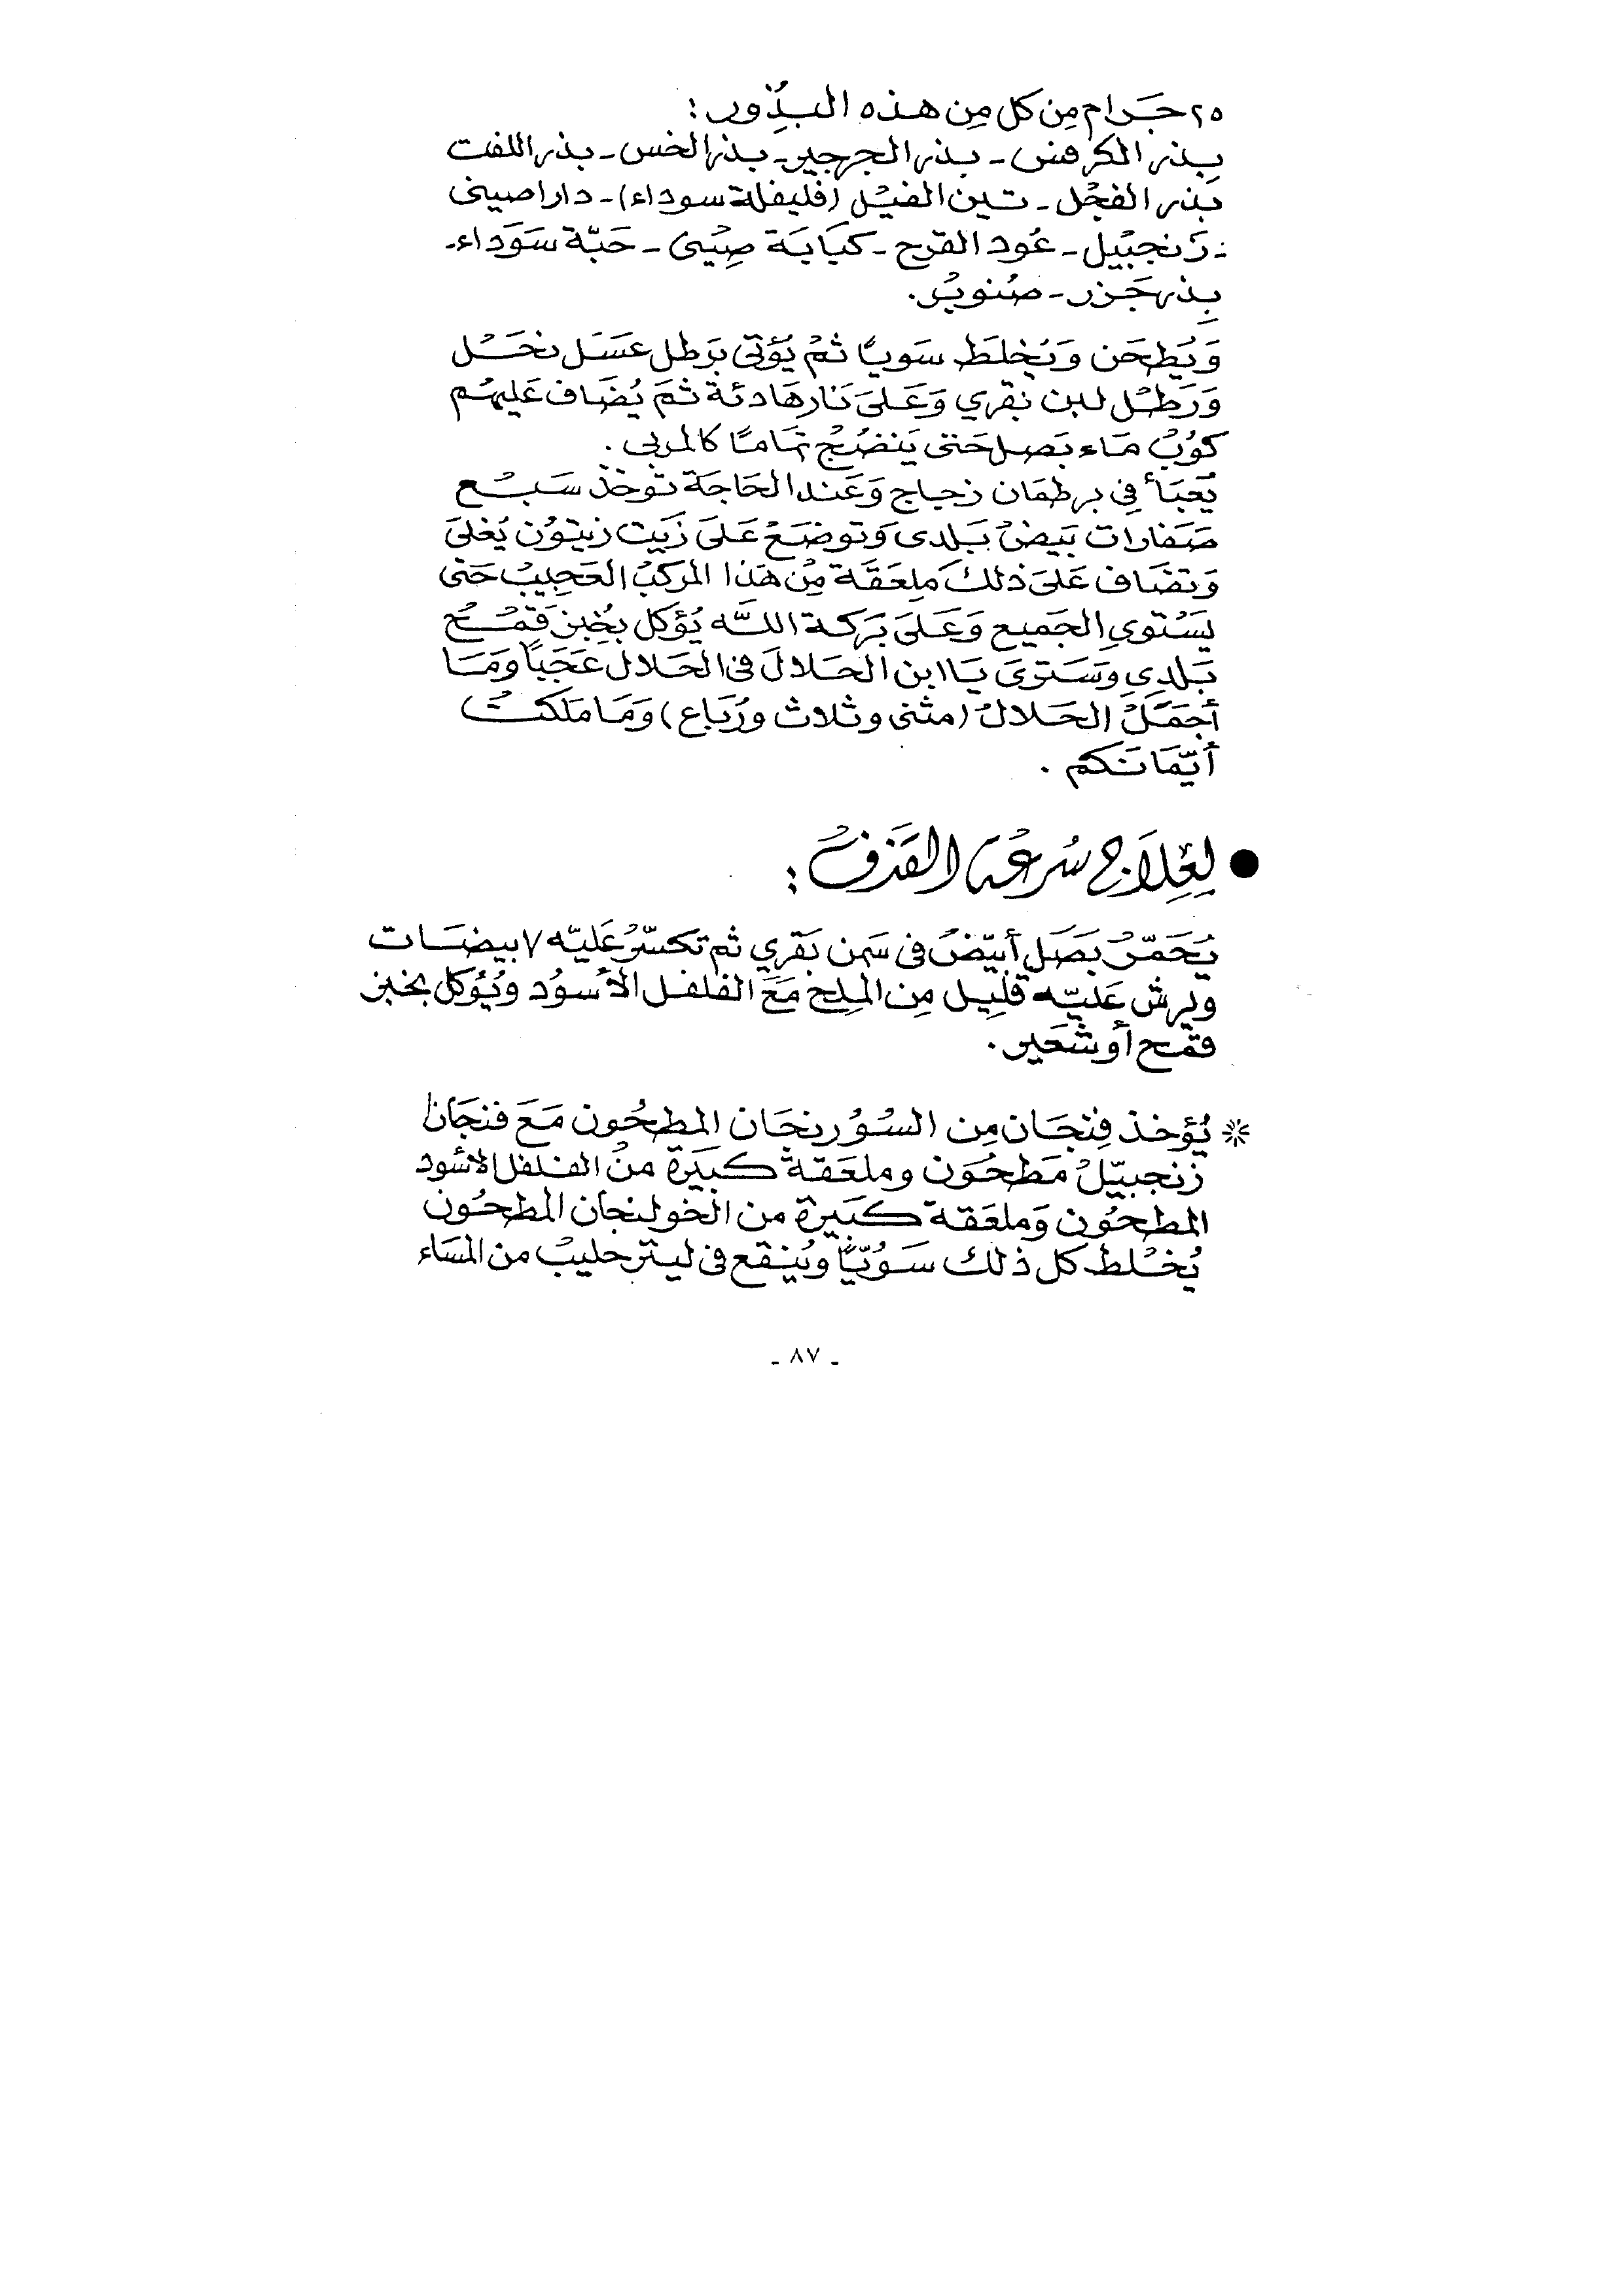 ٢٥ جرام من كل من هذه البذور :
بذر الكرفس - بذر الجرجير - بذر الخس - بذر اللفت
بذر الفجل - تين الفيل (فليفلة سوداء) - دارا صيني
- زنجبيل - عود القرح - كبابة صيني - حبّة سوداء -
بذر جزر - صنوبر .
ويطحن ويخلط سويًا ثم يؤتى برطل عسل نحل
ورطل لبن بقري وعلى نار هادئة ثم يُضاف عليهم
كوب ماء بصل حتى ينضج تمامًا كالمربى .
يعبأ في برطمان زجاج وعند الحاجة تؤخذ سبع
صفارات بيض بلدى وتوضع على زيت زيتون يُغلى
وتضاف على ذلك ملعقة من هذا المركب العجيب حتى
يستوي الجميع وعلى بركة الله يُؤكل بخبز قمح
بلدي وسترى يا ابن الحلال في الحلال عجبًا وما
أجمل الحلال (مثنى وثلاث ورباع) وما ملكت
أيمانكم .
● لعلاج سرعة القذف :
يُحمّر بصل أبيض في سمن بقري ثم تكسّر عليه ٧ بيضات
ويرش عليه قليل من الملح مع الفلفل الأسود ويُؤكل بخبز
قمح أو شعير .
* يُؤخذ فنجان من السورنجان المطحون مع فنجان
زنجبيل مطحون وملعقة كبيرة من الفلفل الأسود
المطحون وملعقة كبيرة من الخولنجان المطحون
يُخلط كل ذلك سويًّا ويُنقع في ليتر حليب من المساء
- ٨٧ -